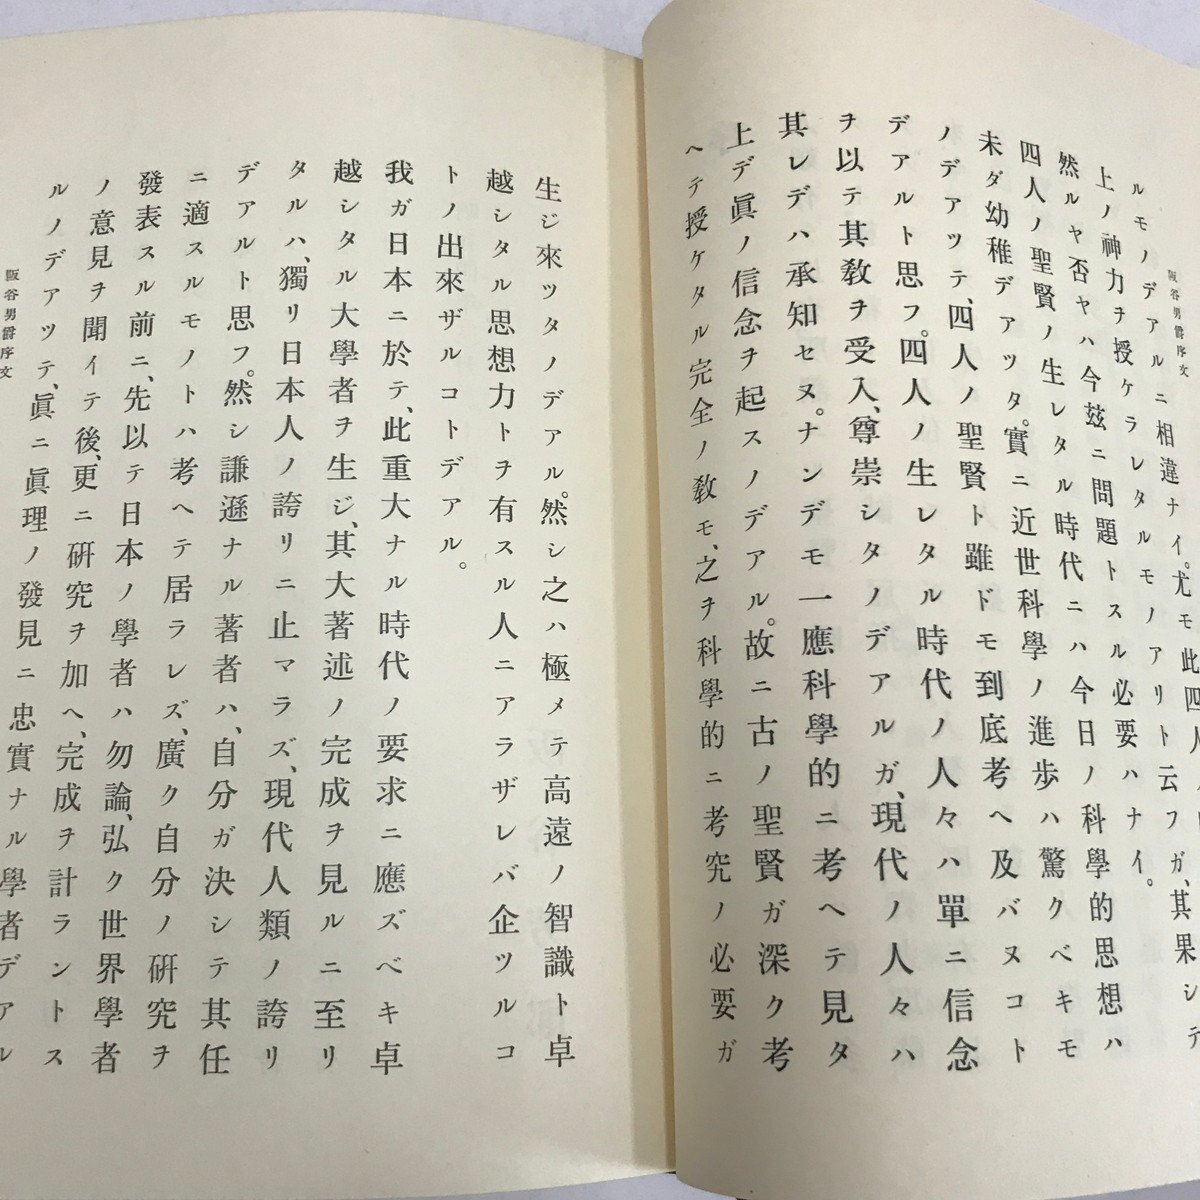 阪谷男爵序文
ルモノデアルニ相違ナイ。尤モ此四人
上ノ神力ヲ授ケラレタルモノアリト云フガ、其果シテ
然ルヤ否ヤハ今茲ニ問題トスル必要ハナイ。
四人ノ聖賢ノ生レタル時代ニハ今日ノ科學的思想ハ
未ダ幼稚デアツタ。實ニ近世科學ノ進歩ハ驚クベキモ
ノデアツテ、四人ノ聖賢ト雖ドモ到底考ヘ及バヌコト
デアルト思フ。四人ノ生レタル時代ノ人々ハ單ニ信念
ヲ以テ其敎ヲ受入、尊崇シタノデアルガ、現代ノ人々ハ
其レデハ承知セヌ。ナンデモ一應科學的ニ考ヘテ見タ
上デ眞ノ信念ヲ起スノデアル。故ニ古ノ聖賢ガ深ク考
ヘテ授ケタル完全ノ敎モ、之ヲ科學的ニ考究ノ必要ガ
生ジ來ツタノデアル。然シ之ハ極メテ高遠ノ智識ト卓
越シタル思想力トヲ有スル人ニアラザレバ企ツルコ
トノ出來ザルコトデアル。
我ガ日本ニ於テ、此重大ナル時代ノ要求ニ應ズベキ卓
越シタル大學者ヲ生ジ、其大著述ノ完成ヲ見ルニ至リ
タルハ、獨リ日本人ノ誇リニ止マラズ、現代人類ノ誇リ
デアルト思フ。然シ謙遜ナル著者ハ、自分ガ決シテ其任
ニ適スルモノトハ考ヘテ居ラレズ、廣ク自分ノ硏究ヲ
發表スル前ニ、先以テ日本ノ學者ハ勿論、弘ク世界學者
ノ意見ヲ聞イテ後、更ニ硏究ヲ加ヘ、完成ヲ計ラントス
ルノデアツテ、眞ニ眞理ノ發見ニ忠實ナル學者デアル
阪谷男爵序文